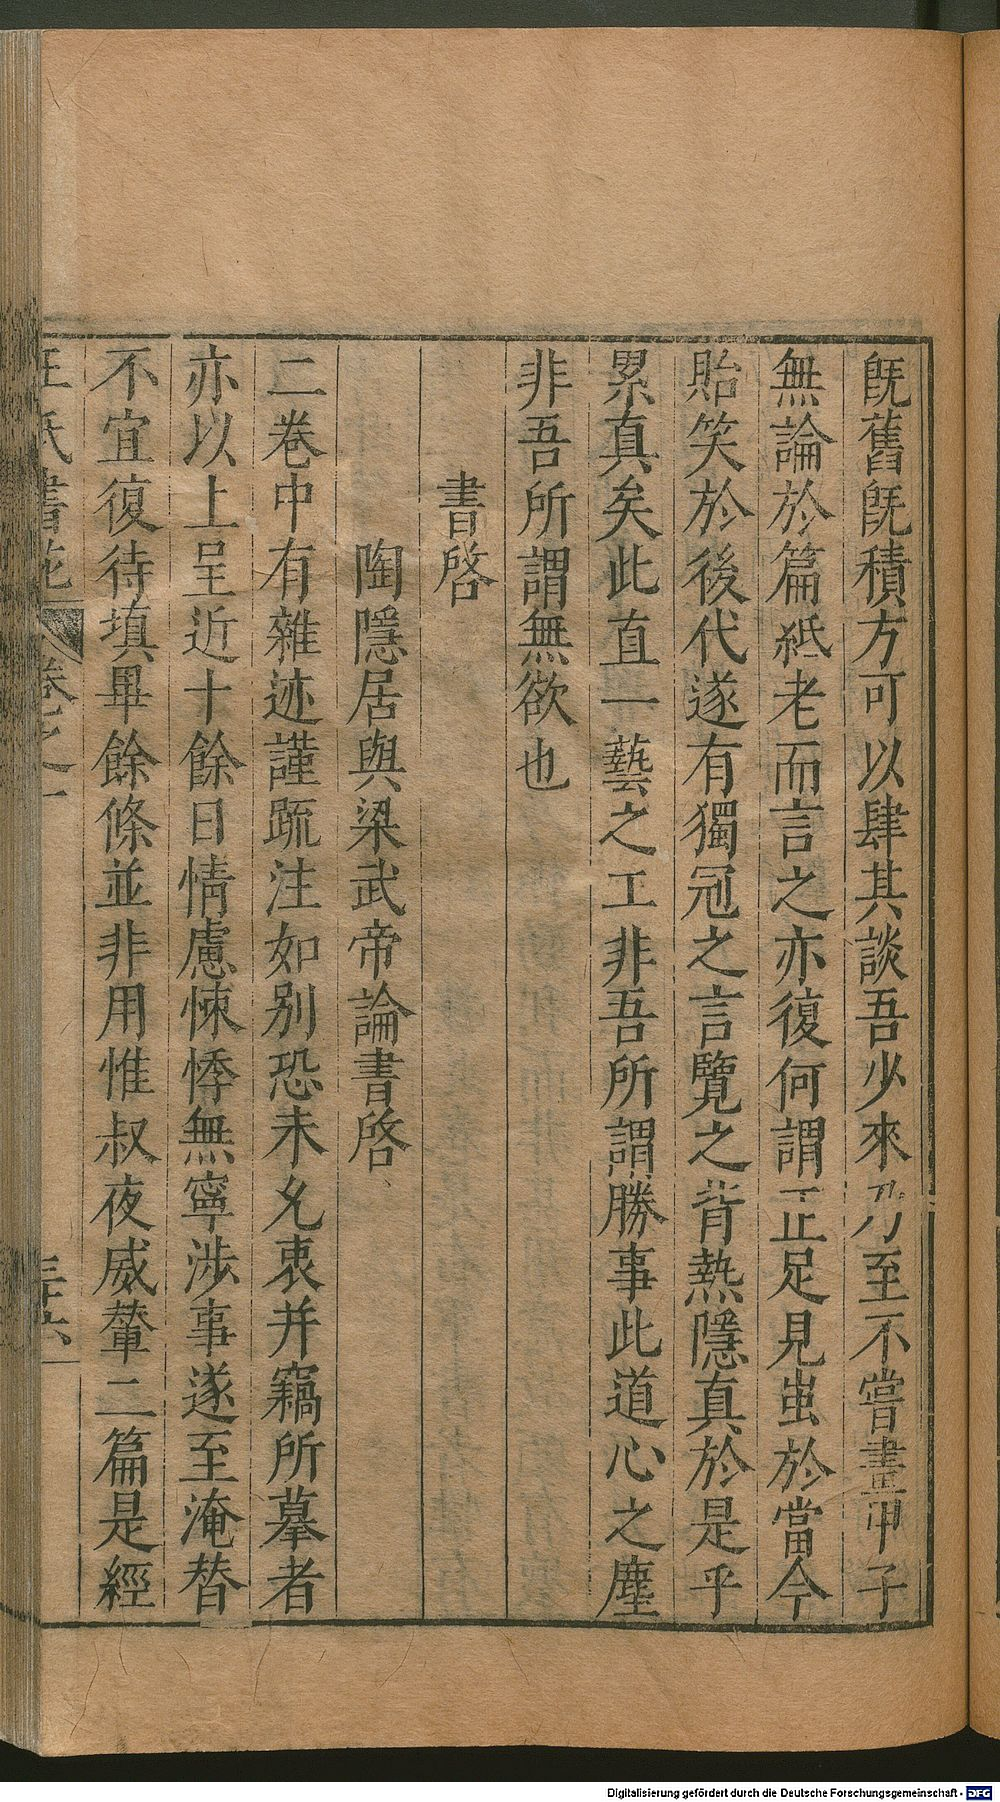 旣舊旣積方可以肆其談吾少來乃至不嘗畫甲子
無論於篇紙老而言之亦復何謂正足見蚩於當今
貽笑於後代遂有獨冠之言覽之背熱隱真於是乎
累真矣此直一藝之工非吾所謂勝事此道心之塵
非吾所謂無欲也
書啓
陶隱居與梁武帝論書啓
二卷中有雜迹謹䟽注如别恐未允衷并竊所摹者
亦以上呈近十餘日情慮悚悸無寧涉事遂至淹替
不宜復待填畢餘條並非用惟叔夜威輦二篇是經
王氏書苑 卷之一 三十六
Digitalisierung gefördert durch die Deutsche Forschungsgemeinschaft - DFG